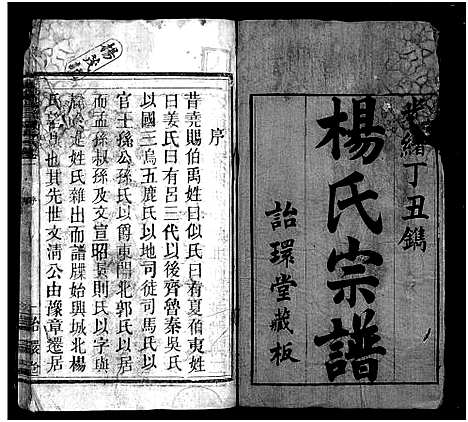 光緒丁丑鐫
楊氏宗譜
詒環堂藏板
序
昔堯賜伯禹姓曰姒氏曰有夏伯東姓
曰姜氏曰有呂三代以後齊魯秦吳氏
以國三烏五鹿氏以地司徒司馬氏以
官王孫公孫氏以爵東門北郭氏以居
而孟孫叔孫及文宣昭景則氏以字與
謚 姓氏雜出而譜牒始興城北楊
氏 也其先世文淸公由豫章遷居